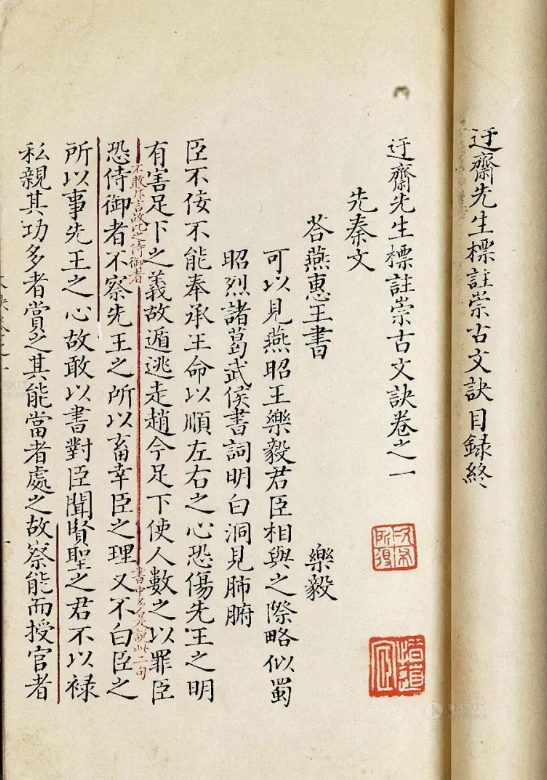 迂齋先生標註崇古文訣目録終
迂齋先生標註崇古文訣卷之一
先秦文
荅燕惠王書 樂毅
可以見燕昭王樂毅君臣相與之際略似蜀
昭烈諸葛武侯書詞明白洞見肺腑
臣不佞不能奉承王命以順左右之心恐傷先王之明
有害足下之義故遁逃走趙今足下使人數之以罪臣
恐侍御者不察先王之所以畜幸臣之理又不白臣之
所以事先王之心故敢以書對臣聞賢聖之君不以禄
私親其功多者賞之其能當者處之故察能而授官者